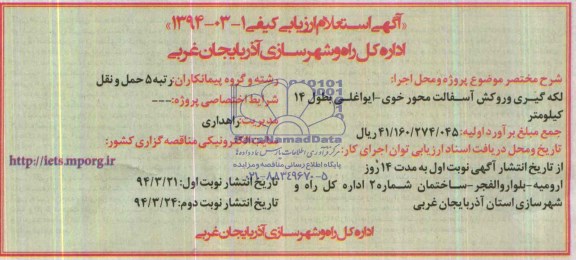 «آگهی استعلام ارزیابی کیفی ۱-۰۳-۱۳۹۴»
اداره کل راه و شهرسازی آذربایجان غربی
شرح مختصر موضوع پروژه و محل اجرا:
لکه گیری و روکش آسفالت محور خوی-ایواغلی بطول ۱۴
کیلومتر
جمع مبلغ برآورد اولیه: ۴۱/۱۶۰/۲۷۴/۰۴۵ ریال
تاریخ و محل دریافت اسناد ارزیابی توان اجرای کار:
از تاریخ انتشار آگهی نوبت اول به مدت ۱۴ روز
ارومیه-بلوار والفجر-ساختمان شماره ۲ اداره کل راه و
شهرسازی استان آذربایجان غربی
رشته و گروه پیمانکاران: رتبه ۵ حمل و نقل
شرایط اختصاصی پروژه: ---
مدیریت راهداری
سایت الکترونیکی مناقصه گزاری کشور:
http://iets.mporg.ir
تاریخ انتشار نوبت اول: ۹۴/۳/۲۱
تاریخ انتشار نوبت دوم: ۹۴/۳/۲۴
اداره کل راه و شهرسازی آذربایجان غربی
ParsNamadData
پایگاه اطلاع رسانی مناقصه و مزایده
۰۲۱-۸۸۳۴۹۶۷۰-۵